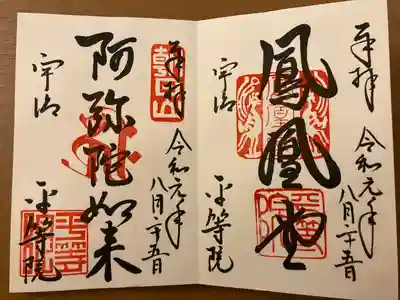 奉拝
令和元年
八月二十五日
鳳凰堂
宇治
平等院
奉拝
令和元年
八月二十五日
朝日山
阿弥陀如来
宇治
平等院
平等院